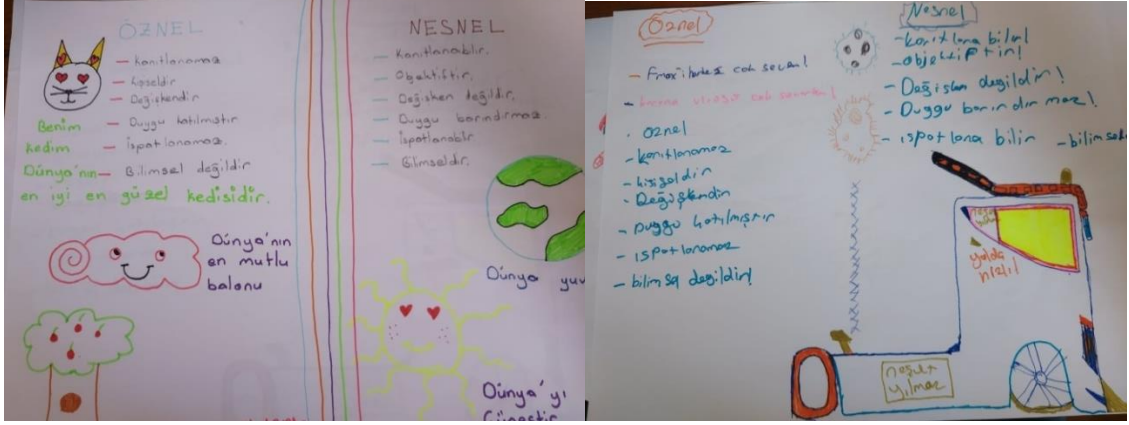 ÖZNEL
— Kanıtlanamaz
— kişseldir
— Değişkendir
— Duygu katılmıştır
— İspatlanamaz.
— Bilimsel değildir
Benim
kedim
Dünya'nın
en iyi en güzel kedisidir.
Dünya'nın
en mutlu
balonu
NESNEL
— Kanıtlanabilir.
— Objektiftir.
— Değişken değildir.
— Duygu barındırmaz.
— İspatlanabilir
— Bilimseldir.
Dünya yuv
Dünya'yı
Güneştir
Öznel
cok sever!
cok
. öznel
- kanıtlanamaz
- Değişkendir
- Duygu katılmıştır
- ispatlanamaz
- bilimsa degildir!
Nesnel
- kanıtlana bilir!
- objektiftir!
- Değişken degildir!
- Duygu barındırmaz!
- ispatlana bilir
- bilimsel
yolda
hızlı!
yılmaz